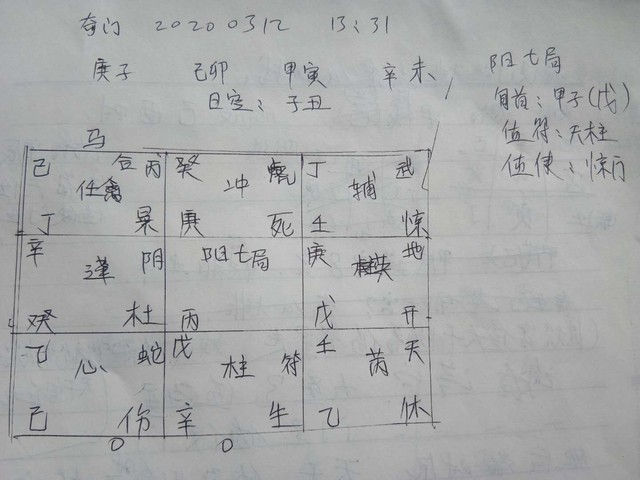 奇门 20200312 13:31
庚子 己卯 甲寅 辛未
日空:子丑
阳七局
旬首:甲子(戊)
值符:天柱
值使:惊门
马
己 合丙 癸 虎 丁 武
任禽 冲 辅
丁 景 庚 死 壬 惊
辛 阴 阳七局 庚 地
逢 英
癸 杜 丙 戊 开
乙 蛇 戊 符 壬 天
心 柱 芮
己 伤 辛 生 乙 休
O O